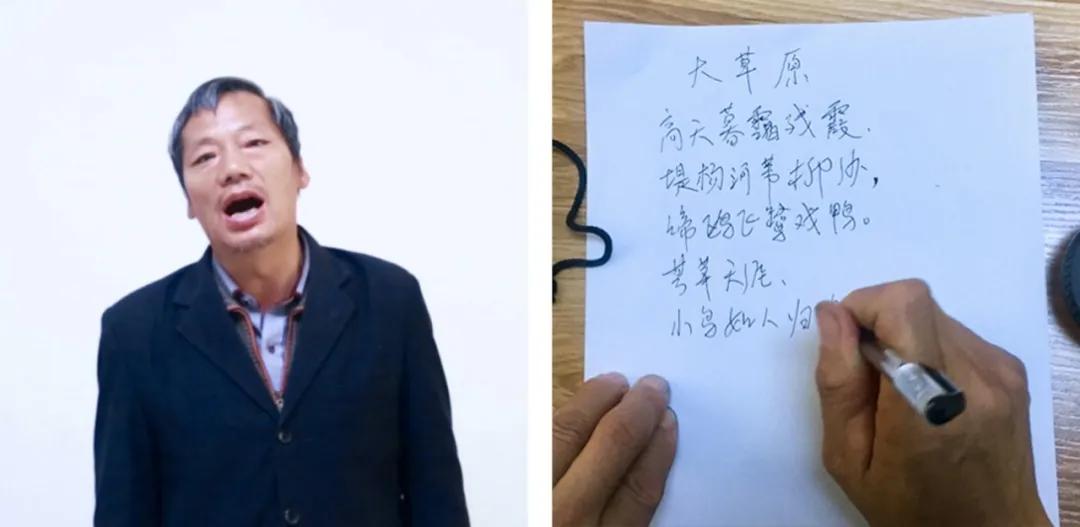 大草原
高天暮霭残霞、
堤杨河苇柳沙，
啼鸥飞鹜戏鸭。
芳草天涯、
小鸟如人归